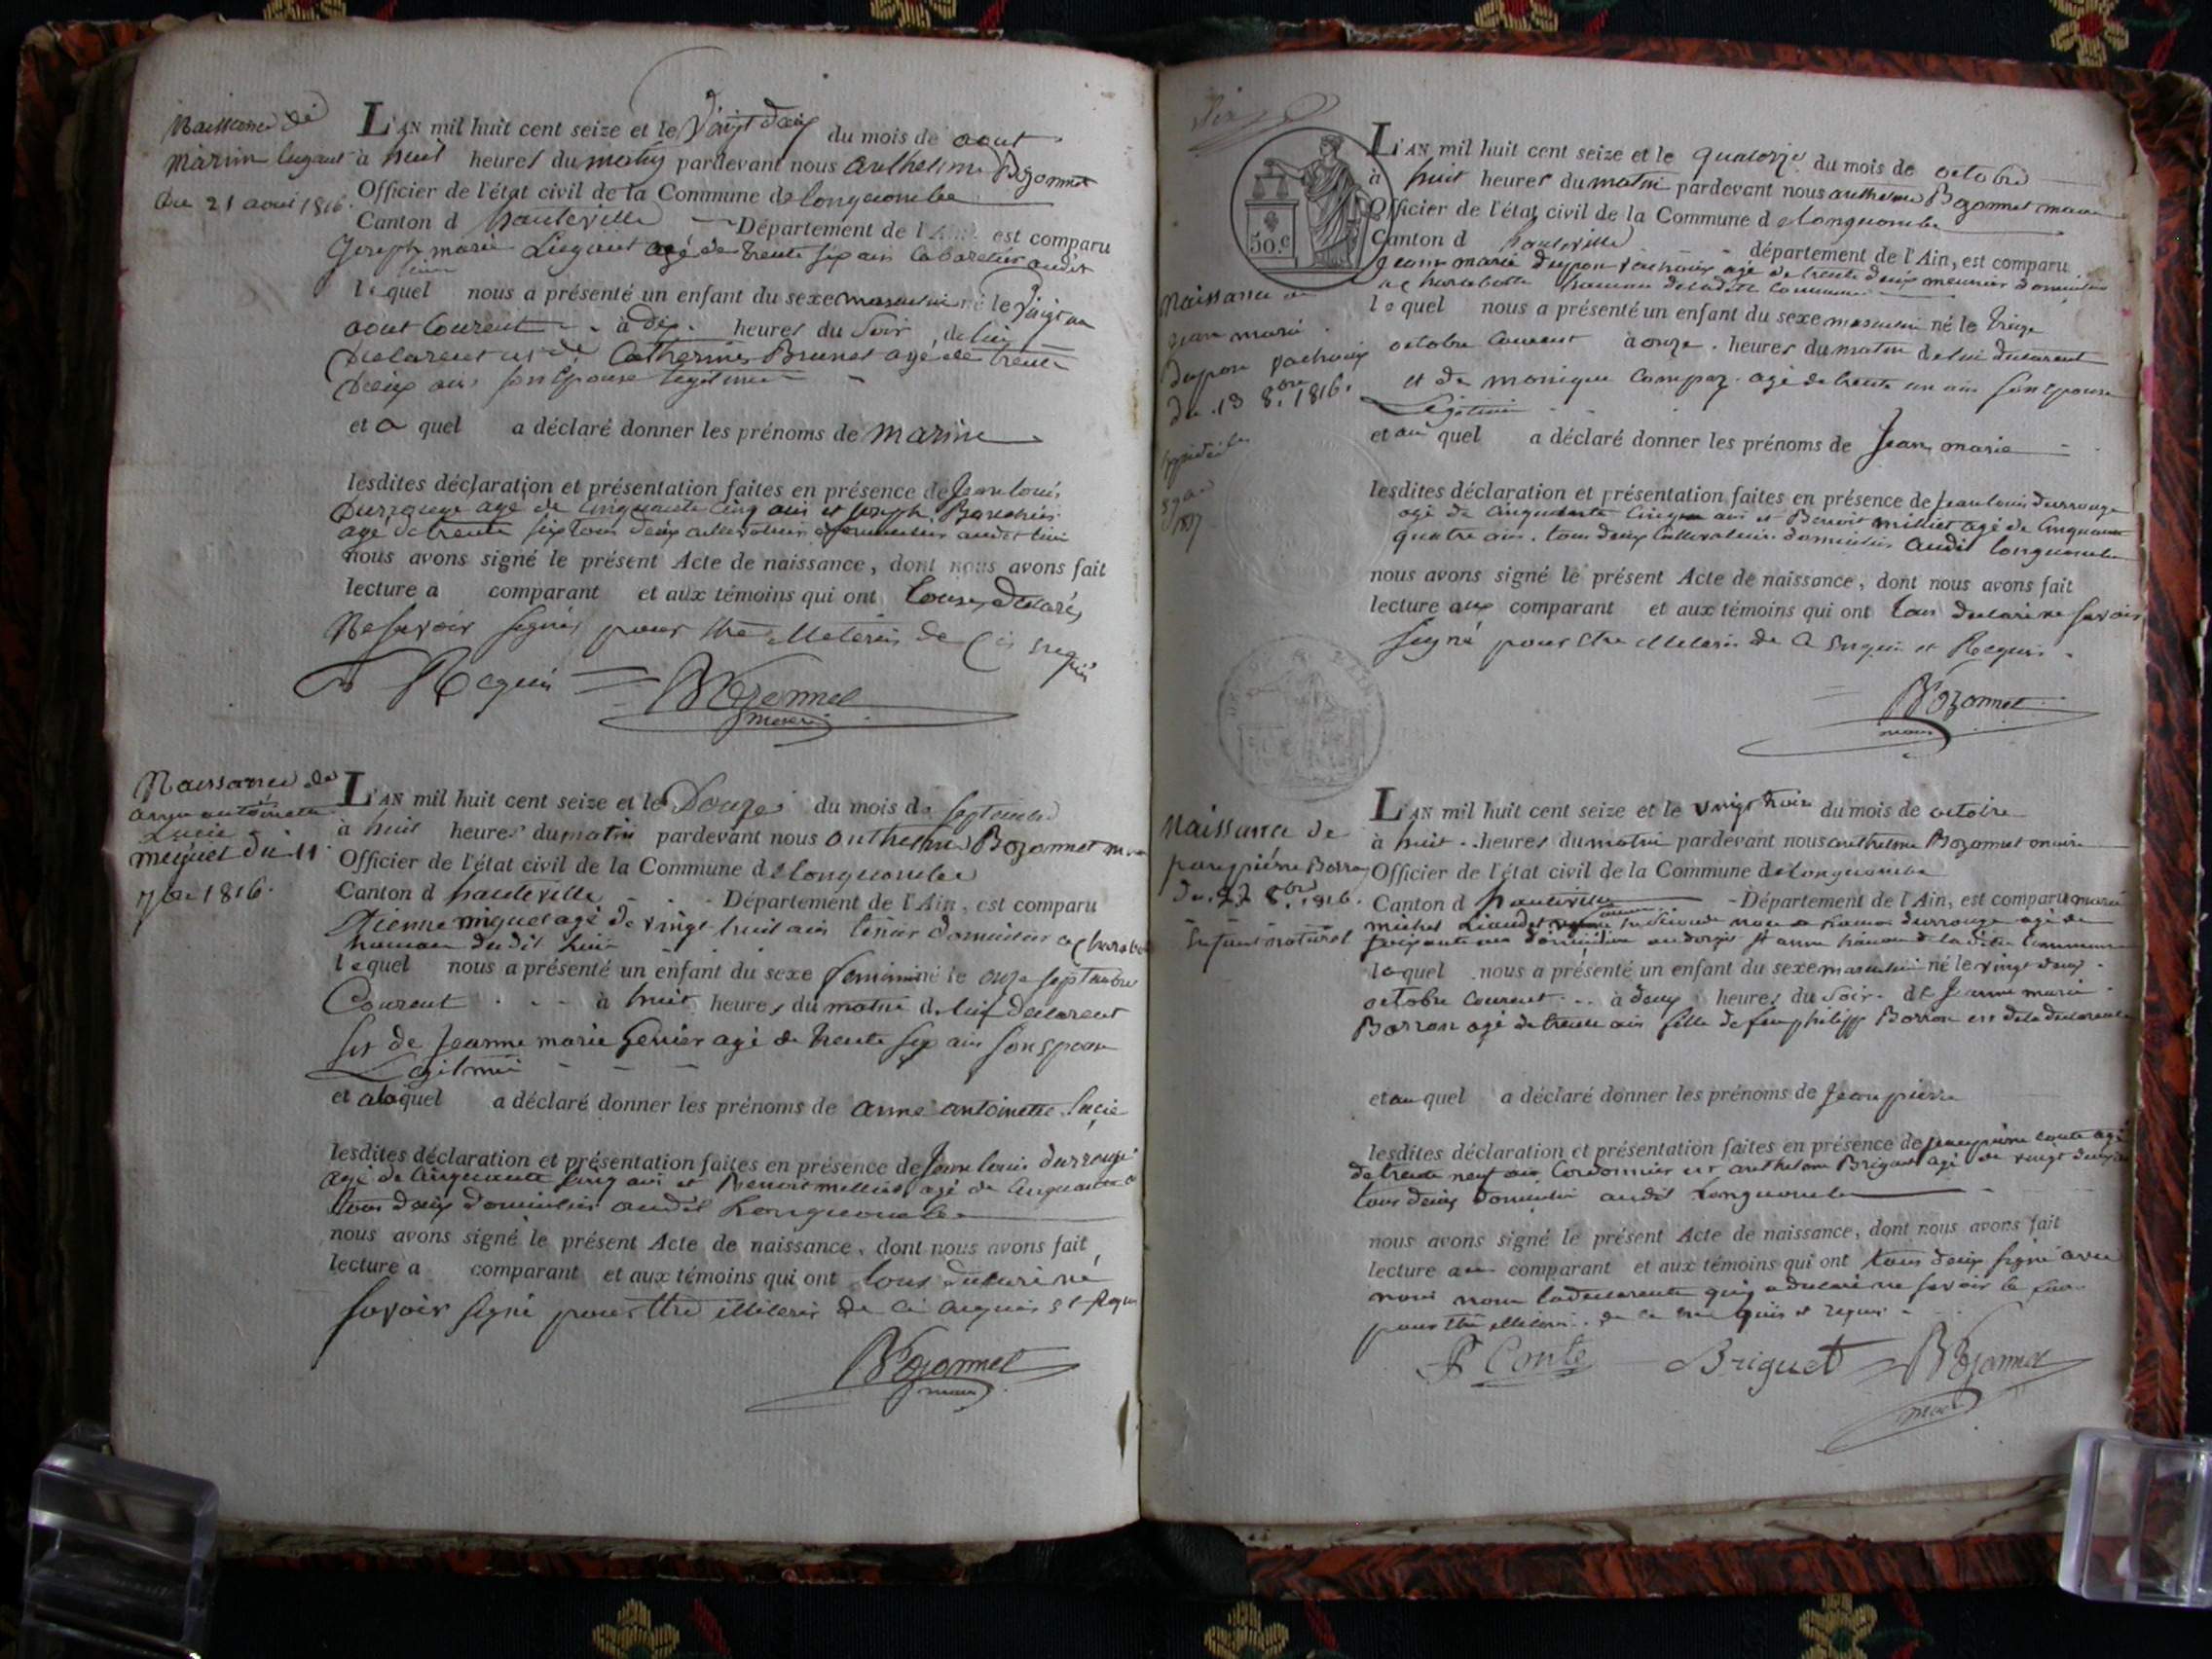 Naissance de
marin Liugaut
du 21 aout 1816.
L'AN mil huit cent seize et le vingt deux du mois de aout
à huit heures du matin pardevant nous anthelme Bozonnet
Officier de l'état civil de la Commune de longecombe
Canton d hauteville Département de l'Ain est comparu
Joseph marie agé de trente six ans cabaretier audit
lieu
lequel nous a présenté un enfant du sexe masculin né le vingt un
aout courent à dix heures du soir, de lui
declarent et de Catherine Brunet agé de trente
deux ans son epouse legitime
et a quel a déclaré donner les prénoms de marin
lesdites déclaration et présentation faites en présence de Jean louis
Durrouge agé de cinquante cinq ans et joseph
agé de trente six tous deux
nous avons signé le présent Acte de naissance, dont nous avons fait
lecture a comparant et aux témoins qui ont tous declaré
Ne savoir signer pour etre de ce enquis
et Requis Bozonnet
maire
Naissance de
anne antoinette
Lucie
miguet du 11
7bre 1816.
L'AN mil huit cent seize et le Douze du mois de septembre
à huit heures du matin pardevant nous anthelme Bozonnet maire
Officier de l'état civil de la Commune d elongecombe
Canton d hauteville Département de l'Ain, est comparu
Etienne miguet agé de vingt huit ans domicilié a charabotte
hameau dudit lieu
lequel nous a présenté un enfant du sexe feminin né le onze septembre
Courent à huit heures du matin de lui declarent
et de Jeanne marie agé de trente six ans son epouse
Legitime
et alaquel a déclaré donner les prénoms de anne antoinette lucie
lesdites déclaration et présentation faites en présence de Jean louis durrouge
agé de cinquante cinq ans et Benoit milliet agé de cinquante
tous deux domiciliés audit Longecombe
nous avons signé le présent Acte de naissance, dont nous avons fait
lecture a comparant et aux témoins qui ont tous declaré ne
savoir signé pour etre de ce enquis et Requis
Bozonnet
maire
50.c
L'AN mil huit cent seize et le quatorze du mois de octobre
à huit heures du matin pardevant nous anthelme Bozonnet maire
Officier de l'état civil de la Commune d elongecombe
Canton d hauteville département de l'Ain, est comparu
Jean marie dupon vachoux agé de trente deux meunier domicilié
a charabotte hameau deladitte commune
Naissance de
jean marie
dupon vachoux
du 13 8.bre 1816.
lequel nous a présenté un enfant du sexe masculin né le treize
octobre courent à onze heures du matin de lui declarent
et de monique agé de trente un ans son epouse
Legitime
et au quel a déclaré donner les prénoms de Jean marie
lesdites déclaration et présentation faites en présence de Jean louis durrouge
agé de cinquante cinq ans et Benoit milliet agé de cinquante
quatre ans tous deux cultivateurs domiciliés audit longecombe
nous avons signé le présent Acte de naissance, dont nous avons fait
lecture aux comparant et aux témoins qui ont tous declaré ne savoir
signé pour etre de ce enquis et Requis
Bozonnet
maire
Naissance de
jean pierre Borron
du 22 8.bre 1816.
Enfant naturel
L'AN mil huit cent seize et le vingt trois du mois de octobre
à huit heures du matin pardevant nous anthelme Bozonnet maire
Officier de l'état civil de la Commune delongecombe
Canton d hauteville Département de l'Ain, est comparu marie
durrouge agé de
soixante ans domicilié hameau de ladite Commune
laquel nous a présenté un enfant du sexe masculin né le vingt deux
octobre courent à deux heures du soir de Jeanne marie
Borron agé de trente ans fille de feu philipp Borron
et au quel a déclaré donner les prénoms de Jean pierre
lesdites déclaration et présentation faites en présence de jean pierre conte agé
de trente neuf ans Cordonnier et anthelme Briguet agé de vingt deux
tous deux domicilié audit Longecombe
nous avons signé le présent Acte de naissance, dont nous avons fait
lecture au comparant et aux témoins qui ont tous deux signé avec
nous non ladeclarente qui a declaré ne savoir le faire
pour etre de ce enquis et requis
P Conte Briguet Bozonnet
maire